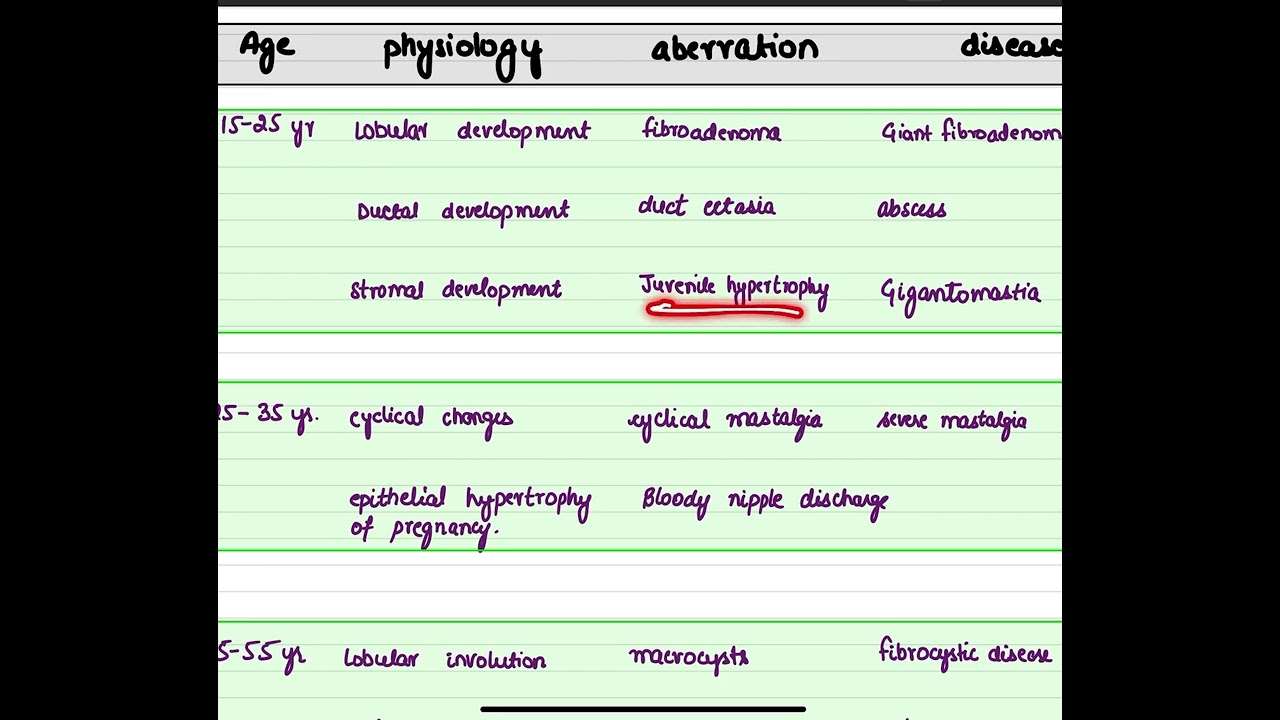 Age physiology aberration disease
15-25 yr Lobular development fibroadenoma Giant fibroadenom
Ductal development duct ectasia abscess
Stromal development Juvenile hypertrophy Gigantomastia
25- 35 ys. cyclical changes cyclical mastalgia severe mastalgia
epithelial hypertrophy Bloody nipple discharge
of pregnancy.
5-55 yr Lobular involution macrocysts fibrocystic disease